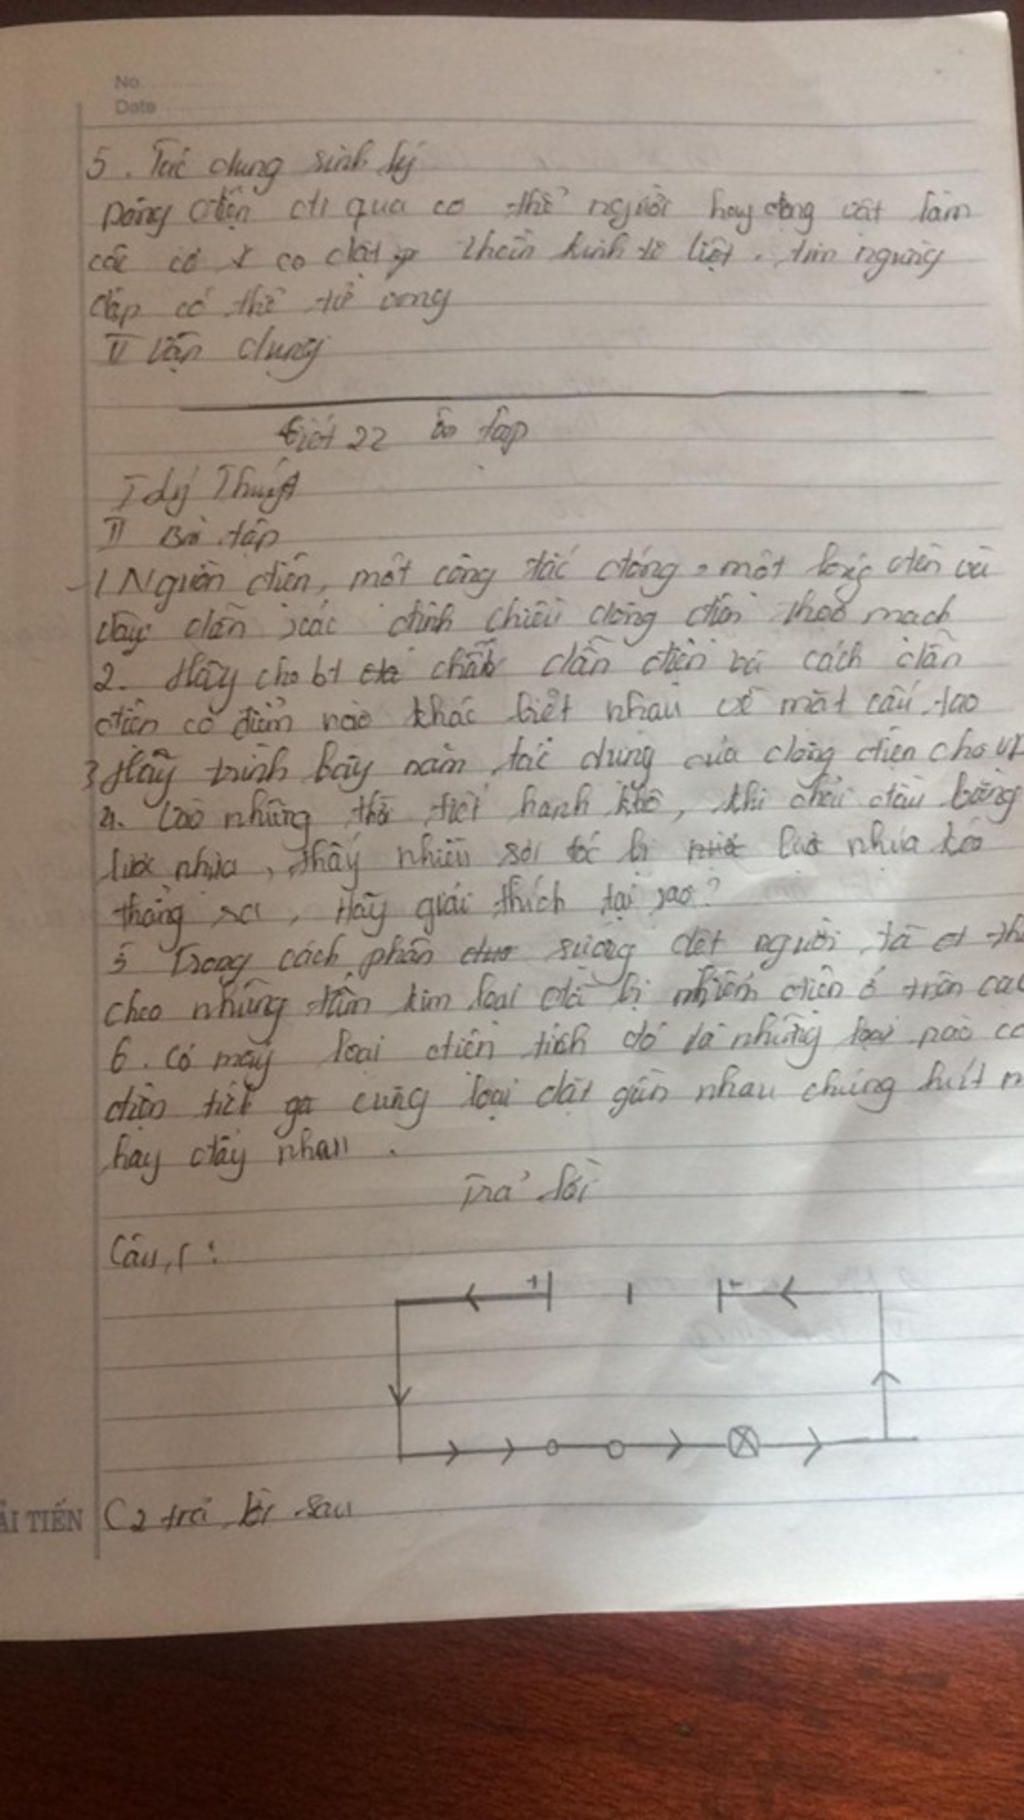 No
Date
5. Tác dụng sinh lý
Dòng điện đi qua cơ thể người hay động vật làm
các cơ co dật thần kinh tê liệt, tim ngừng
đập có thể tử vong
V Vận dụng
tiết 22 ôn tập
I Lý Thuyết
II Bài tập
1 Nguồn điện, một công tắc đóng, một bóng đèn và
dây dẫn xác định chiều dòng điện theo mạch
2. Hãy cho bt chất dẫn điện và cách dẫn
điện có điểm nào khác biệt nhau về mặt cấu tạo
3 Hãy trình bày năm tác dụng của dòng điện cho
4. Vào những thời tiết hanh khô, khi chải đầu bằng
lược nhựa, thấy nhiều sợi tóc bị lược nhựa kéo
thẳng ra, Hãy giải thích tại sao?
5 Trong cách phân xưởng dệt người ta
cheo những tấm kim loại đã bị nhiễm điện ở trên
6. Có mấy loại điện tích đó là những loại nào
điện tích cùng loại đặt gần nhau chúng hút
hay đẩy nhau.
Trả lời
Câu 1:
+ -
ẢI TIẾN
C2 trả lời sau